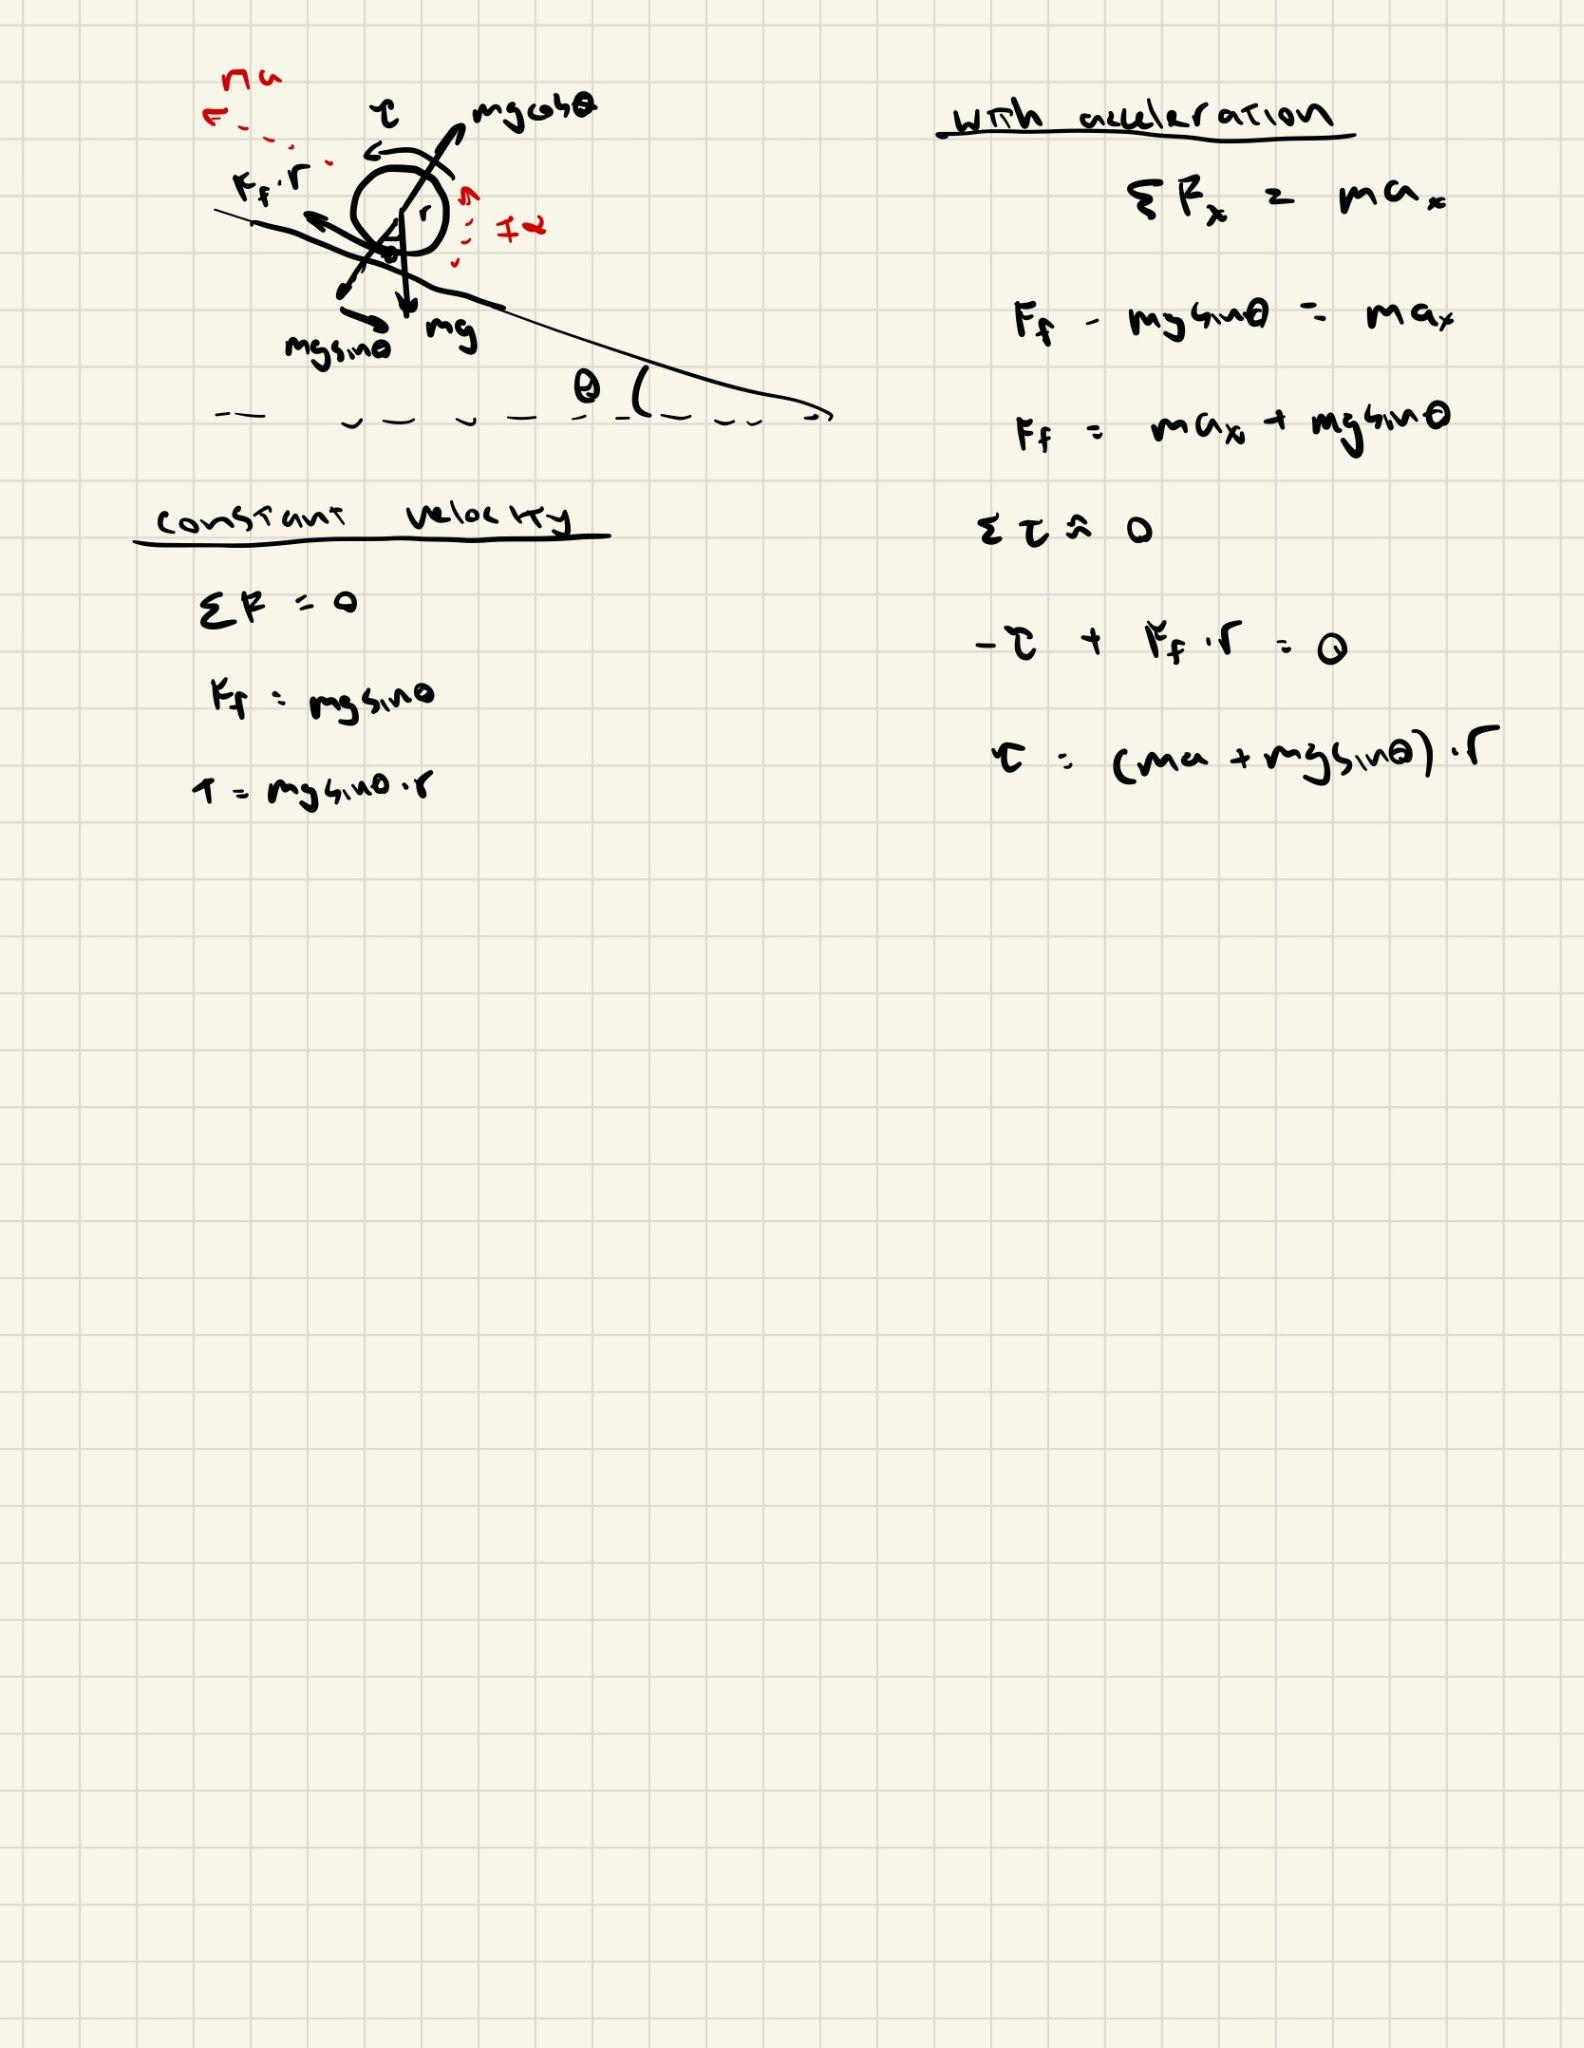 ma
τ
mgcosθ
F_f · r
r
Iα
θ
mgsinθ
mg
θ
constant velocity
ΣF = 0
F_f = mgsinθ
τ = mgsinθ · r
with acceleration
ΣF_x = ma_x
F_f - mgsinθ = ma_x
F_f = ma_x + mgsinθ
Στ ≈ 0
-τ + F_f · r = 0
τ = (ma + mgsinθ) · r